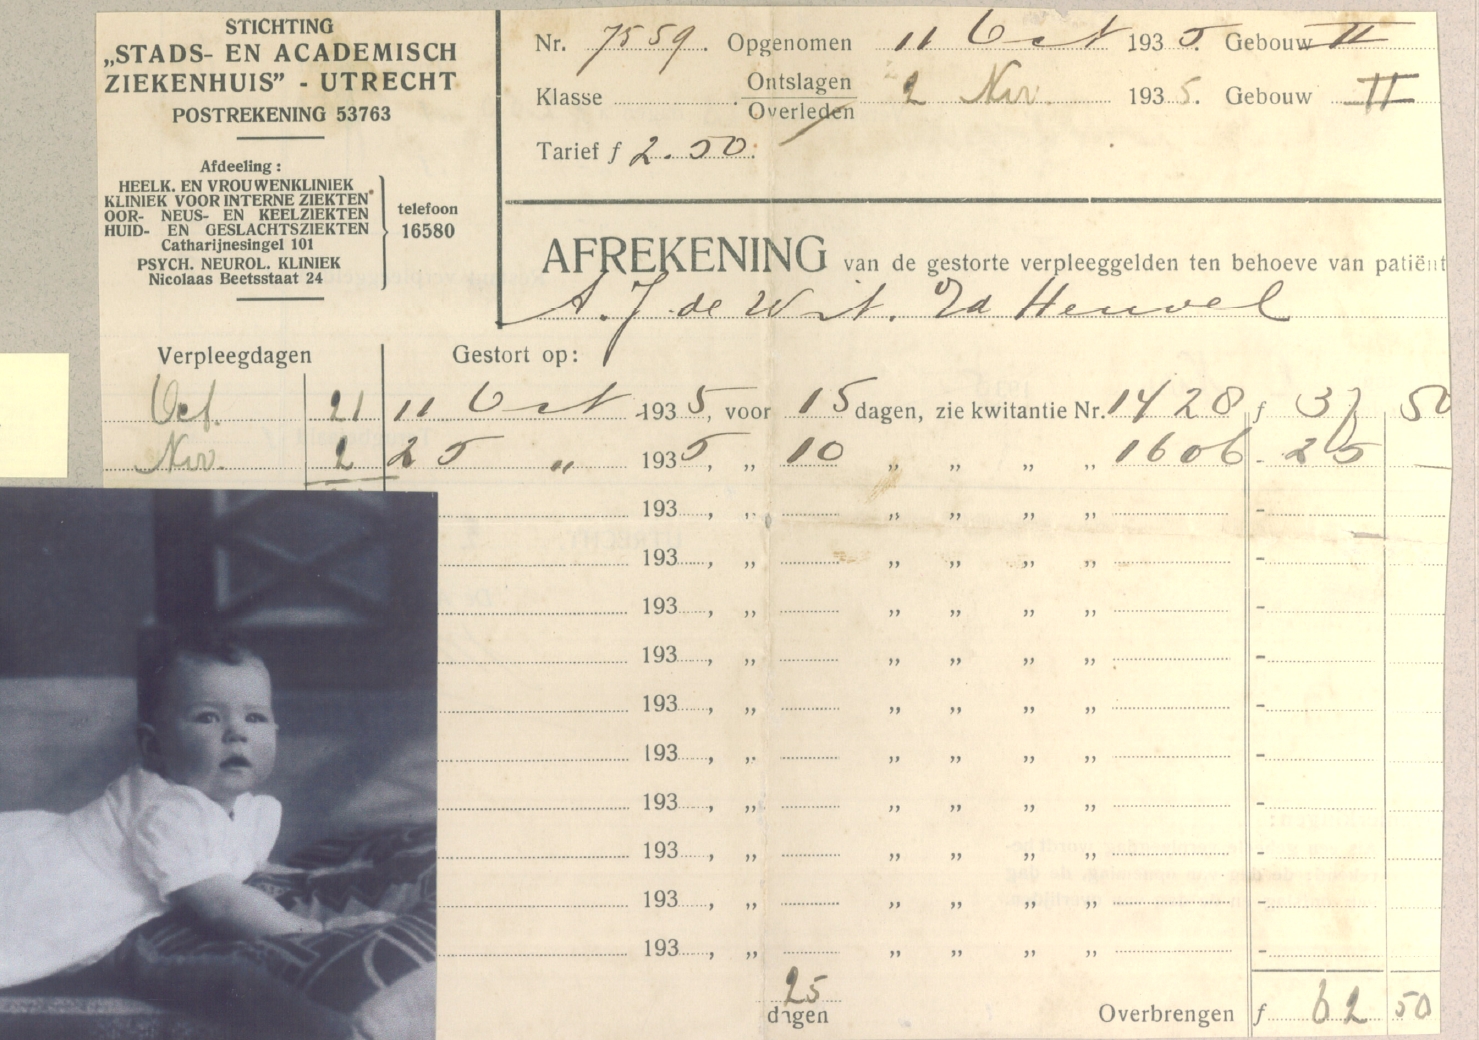 STICHTING
„STADS- EN ACADEMISCH
ZIEKENHUIS” - UTRECHT
POSTREKENING 53763
Afdeeling :
HEELK. EN VROUWENKLINIEK
KLINIEK VOOR INTERNE ZIEKTEN
OOR- NEUS- EN KEELZIEKTEN
HUID- EN GESLACHTSZIEKTEN
Catharijnesingel 101
PSYCH. NEUROL. KLINIEK
Nicolaas Beetsstaat 24
telefoon
16580
Nr. 7559. Opgenomen 11 Oct 1935. Gebouw II
Klasse Ontslagen 2 Nov. 1935. Gebouw II
Overleden
Tarief f 2.50.
AFREKENING van de gestorte verpleeggelden ten behoeve van patiënt
A. J. de Wit. Ed Heuvel
Verpleegdagen Gestort op:
Oct. 21 11 Oct 1935, voor 15 dagen, zie kwitantie Nr. 1428 f 37 50
Nov. 2 25 „ 1935, „ 10 „ „ „ „ 1606 - 25 -
193 , „ „ „ „ „ -
193 , „ „ „ „ „ -
193 , „ „ „ „ „ -
193 , „ „ „ „ „ -
193 , „ „ „ „ „ -
193 , „ „ „ „ „ -
193 , „ „ „ „ „ -
193 , „ „ „ „ „ -
193 , „ „ „ „ „ -
193 , „ „ „ „ „ -
25
dagen Overbrengen f 62 50